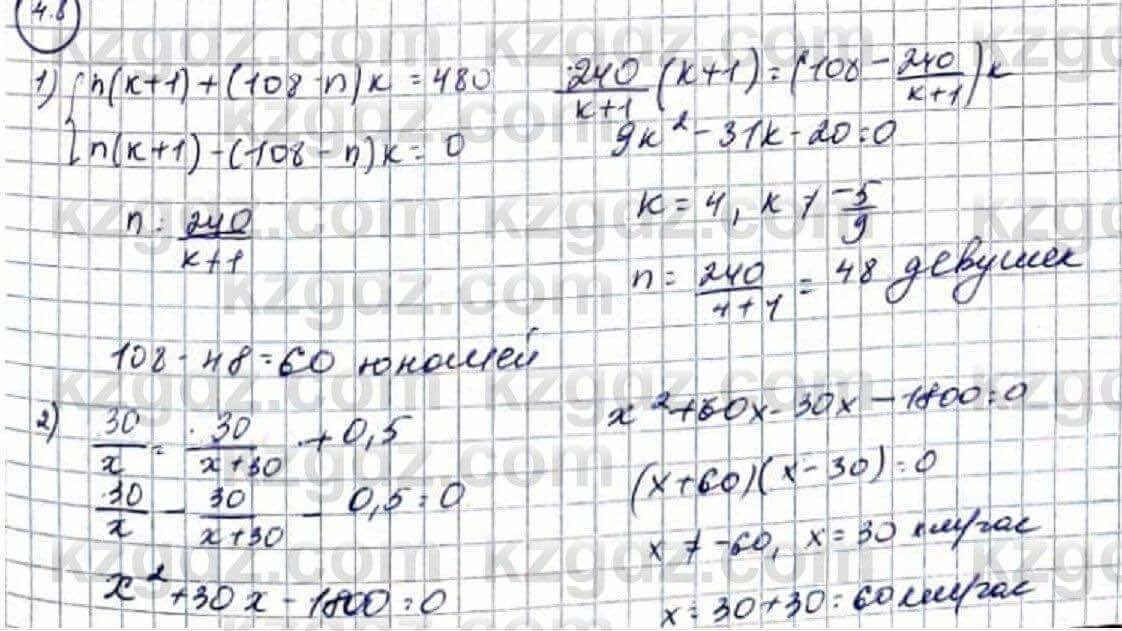 4.8
1) n(k+1)+(108-n)k=480
n(k+1)-(108-n)k=0
n=240/(k+1)
240/(k+1) (k+1)=(108-240/(k+1))k
9k²-31k-20=0
k=4, k≠-5/9
n=240/(4+1)=48 девушек
108-48=60 юношей
2) 30/x=30/(x+30)+0,5
30/x-30/(x+30)-0,5=0
x²+30x-1800=0
x²+60x-30x-1800=0
(x+60)(x-30)=0
x≠-60, x=30 км/час
x=30+30=60 км/час
kzgdz.com